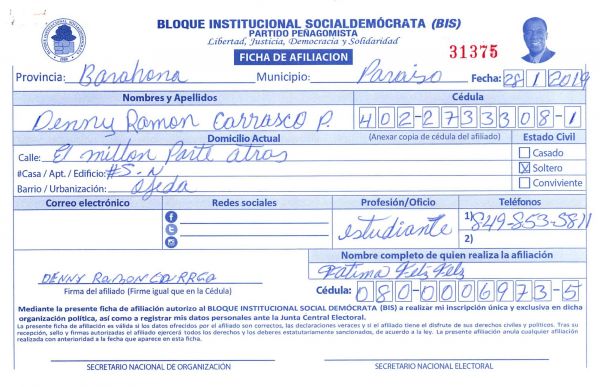 BLOQUE INSTITUCIONAL SOCIALDEMÓCRATA (BIS)
PARTIDO PEÑAGOMISTA
Libertad, Justicia, Democracia y Solidaridad
FICHA DE AFILIACION
31375
Provincia: Barahona Municipio: Paraiso Fecha: 28/1/2019
Nombres y Apellidos
Cédula
Denny Ramon Carrasco P.
402-2733308-1
Domicilio Actual
(Anexar copia de cédula del afiliado)
Estado Civil
Calle: El millon Parte atras
Casado
#Casa / Apt. / Edificio: #S-N
Soltero
Barrio / Urbanización: Ojeda
Conviviente
Correo electrónico
Redes sociales
Profesión/Oficio
Teléfonos
estudiante
1) 849-853-5811
2)
Nombre completo de quien realiza la afiliación
Fatima Feliz Feliz
DENNY RAMON
Firma del afiliado (Firme igual que en la Cédula)
Cédula: 080-0006973-5
Mediante la presente ficha de afiliación autorizo al BLOQUE INSTITUCIONAL SOCIAL DEMÓCRATA (BIS) a realizar mi inscripción única y exclusiva en dicha
organización política, así como a registrar mis datos personales ante la Junta Central Electoral.
La presente ficha de afiliación es válida si los datos ofrecidos por el afiliado son correctos, las declaraciones veraces y si el afiliado tiene el disfrute de sus derechos civiles y políticos. Tras su
recepción, sello y firmas autorizadas el afiliado ejercerá todos los derechos y los deberes estatutariamente sancionados, de acuerdo a la ley. La presente afiliación anula cualquier afiliación
realizada con anterioridad a la fecha que aparece en esta ficha.
SECRETARIO NACIONAL DE ORGANIZACIÓN
SECRETARIO NACIONAL ELECTORAL